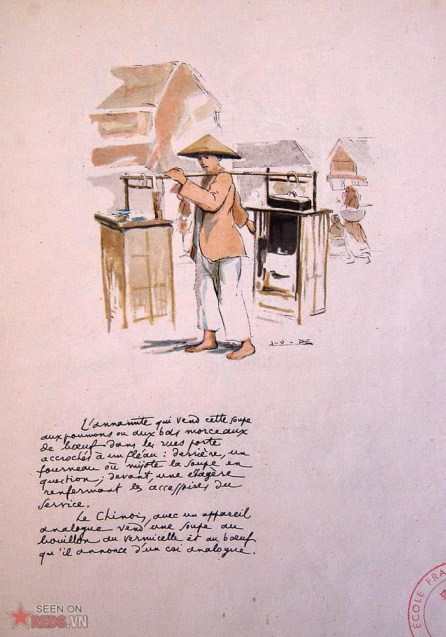 J-V-DĐ
L'annamite qui vend cette soupe
aux poumons ou aux bas morceaux
de bœuf dans les rues porte
accrochés à un fléau : derrière, un
fourneau où mijote la soupe en
question ; devant, une étagère
renfermant les accessoires du
service.
Le Chinois, avec un appareil
analogue vend une soupe au
bouillon du vermicelle et au bœuf
qu'il annonce d'un cri analogue.
ECOLE FRA
SEEN ON
REDS.VN